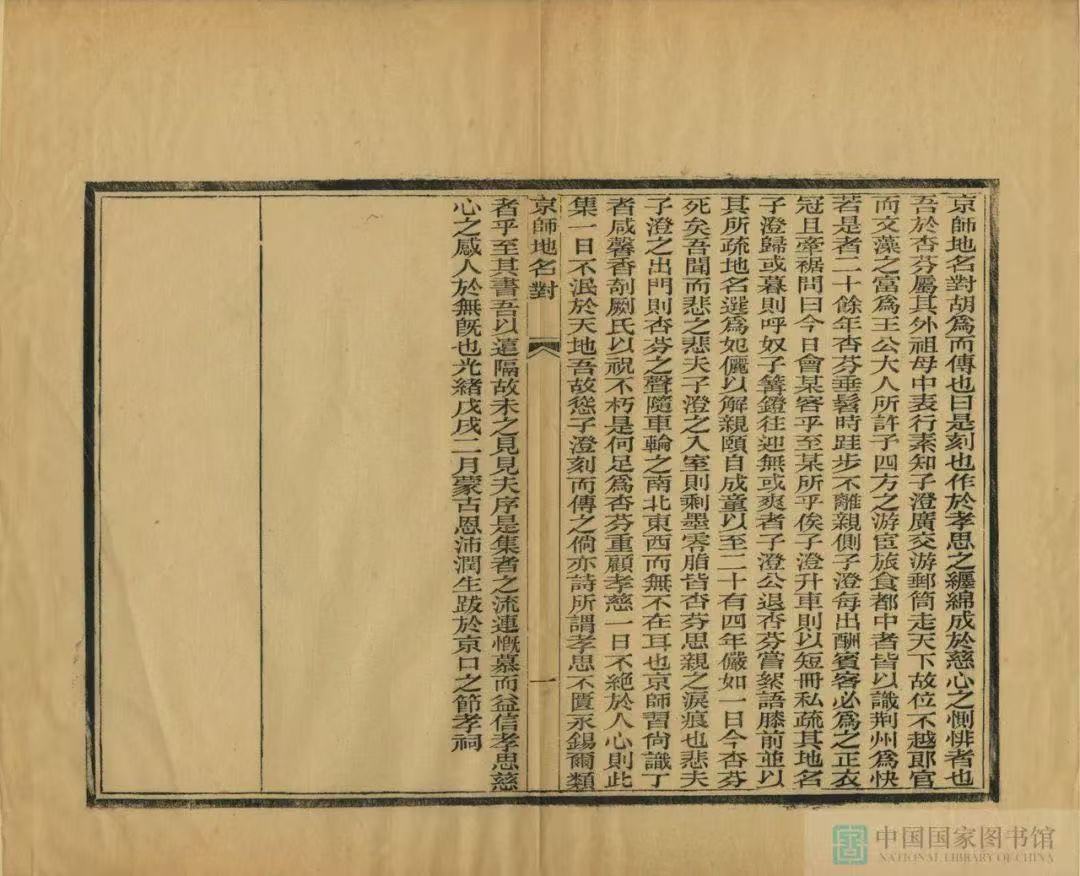 京師地名對胡爲而傳也曰是刻也作於孝思之纏綿成於慈心之惻悱者也
吾於杏芬屬其外祖母中表行素知子澄廣交游郵筒走天下故位不越郎官
而文藻之富爲王公大人所許予四方之游宦旅食都中者皆以識荆州爲快
若是者二十餘年杏芬垂髫時跬步不離親側子澄每出酬賓客必爲之正衣
冠且牽裾問曰今日會某客乎至某所乎俟子澄升車則以短冊私疏其地名
子澄歸或暮則呼奴子篝鐙往迎無或爽者子澄公退杏芬嘗絮語膝前並以
其所疏地名選爲妃儷以解親頤自成童以至二十有四年儼如一日今杏芬
死矣吾聞而悲之悲夫子澄之入室則剩墨零脂皆杏芬思親之淚痕也悲夫
子澄之出門則杏芬之聲隨車輪之南北東西而無不在耳也京師習尙識丁
者咸馨香剞劂氏以祝不朽是何足爲杏芬重顧孝慈一日不絕於人心則此
集一日不泯於天地吾故慫子澄刻而傳之倘亦詩所謂孝思不匱永錫爾類
京師地名對
一
者乎至其書吾以遠隔故未之見見夫序是集者之流連慨慕而益信孝思慈
心之感人於無旣也光緒戊戌二月蒙古恩沛潤生跋於京口之節孝祠
中国国家图书馆
NATIONAL LIBRARY OF CHINA